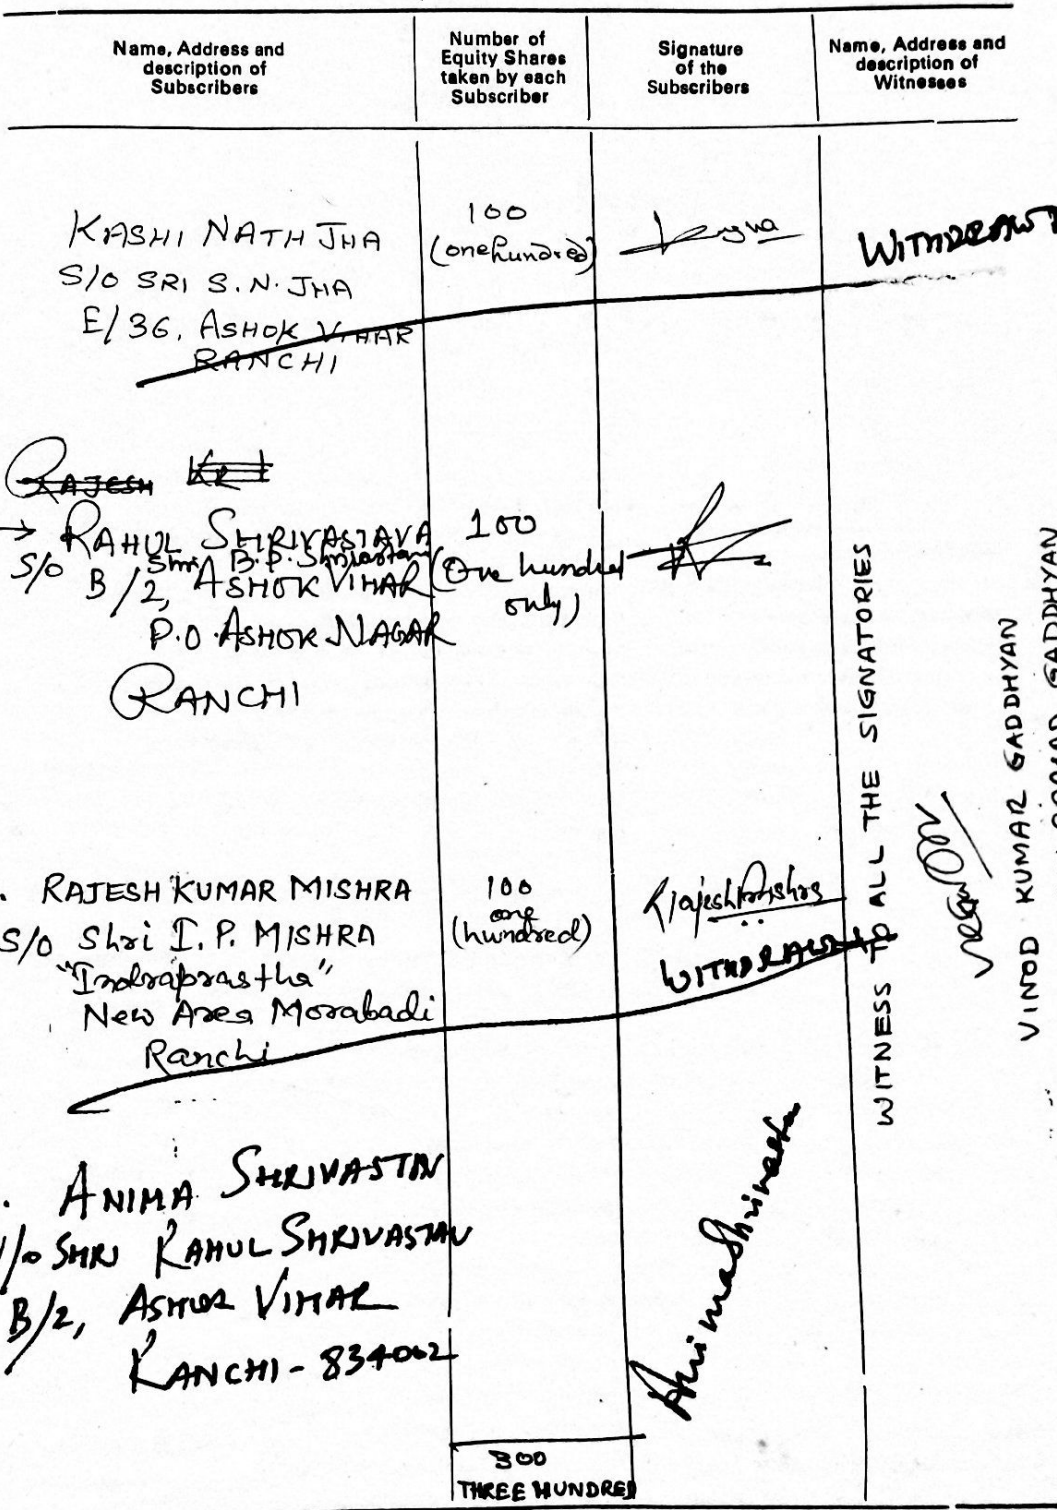 Name, Address and
description of
Subscribers
Number of
Equity Shares
taken by each
Subscriber
Signature
of the
Subscribers
Name, Address and
description of
Witnesses
KASHI NATH JHA
S/O SRI S.N. JHA
E/36, ASHOK VIHAR
RANCHI
100
(one hundred)
WITHDRAWN
RAJESH KR
→ RAHUL SHRIVASTAVA
S/O Shri B.P. Shrivastava
B/2, ASHOK VIHAR
P.O. ASHOK NAGAR
RANCHI
100
(One hundred
only)
. RAJESH KUMAR MISHRA
S/O Shri I.P. MISHRA
"Indraprastha"
New Area Morabadi
Ranchi
100
one
(hundred)
Rajesh Mishra
WITHDRAWN
. ANIMA SHRIVASTAV
/o SHRI RAHUL SHRIVASTAV
B/2, ASHOK VIHAR
RANCHI - 834002
Anima Shrivastava
300
THREE HUNDRED
WITNESS TO ALL THE SIGNATORIES
VINOD KUMAR GADDHYAN
GADDHYAN